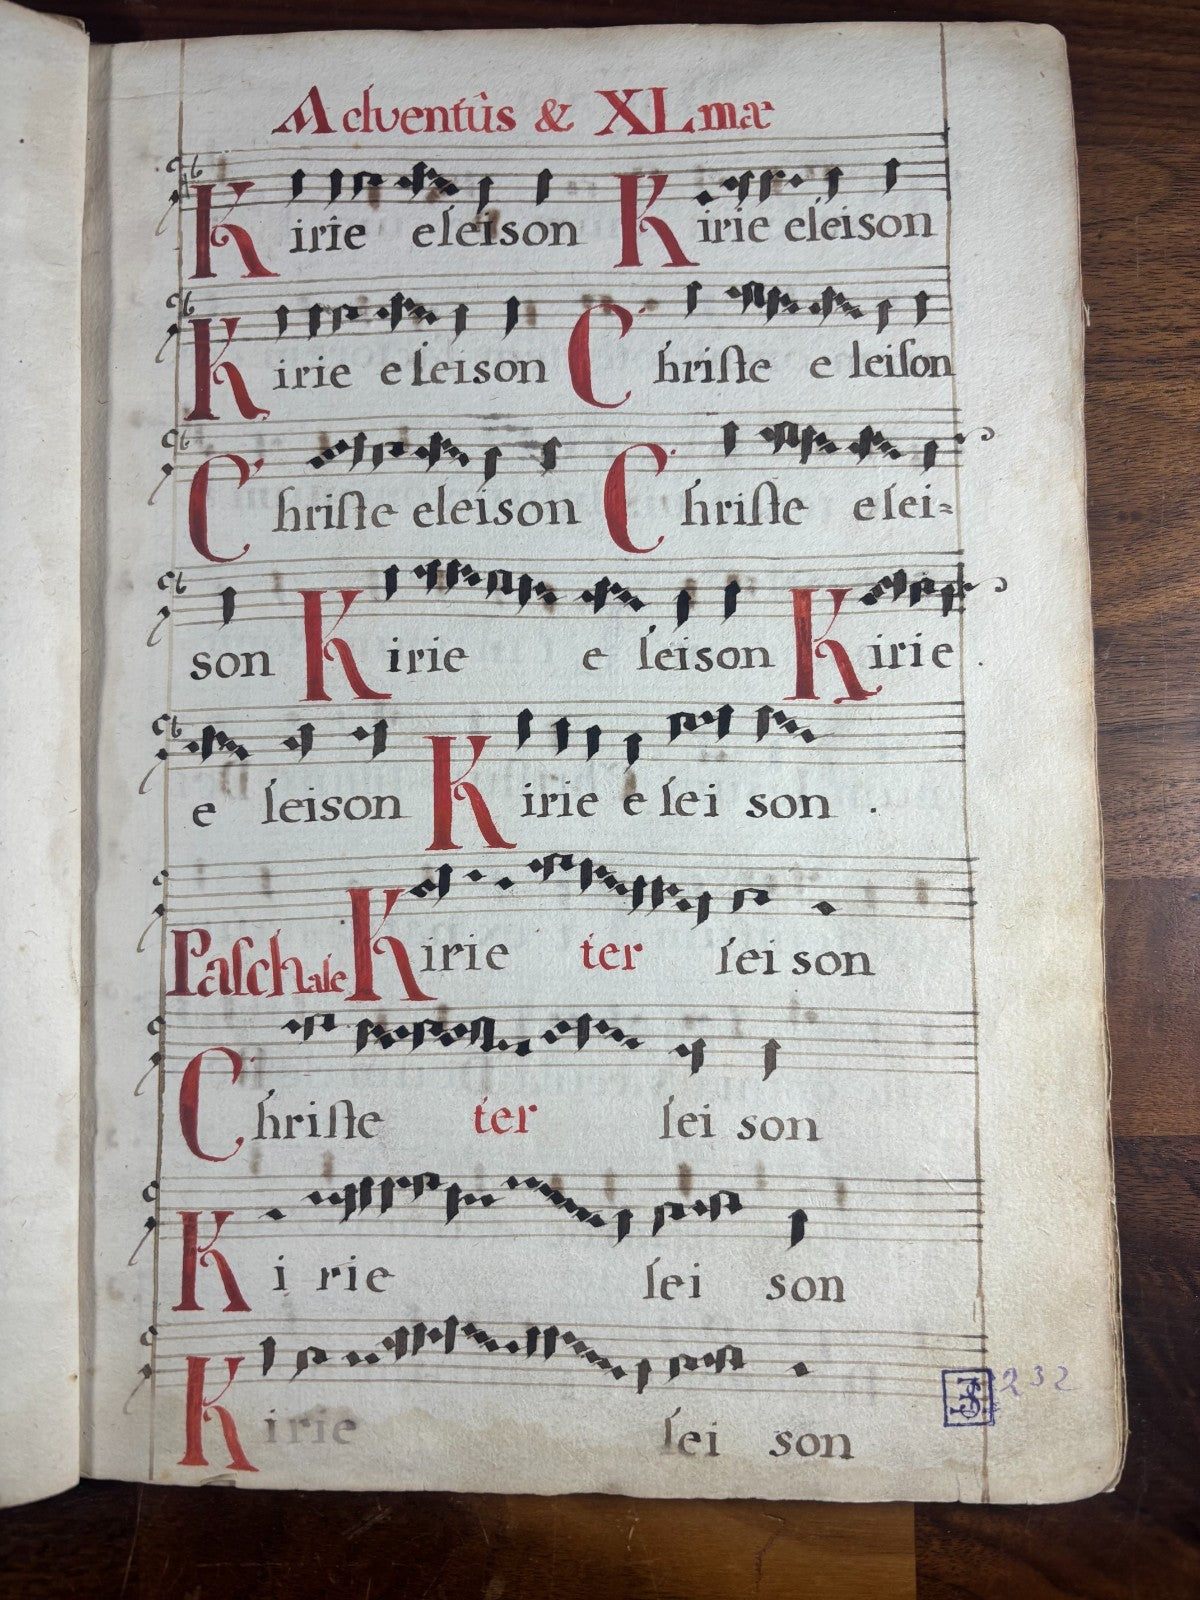 Adventûs & XLmæ
Kirie eleison Kirie eleison
Kirie eleison Christe e leison
Christe eleison Christe elei=
son Kirie e leison Kirie .
e leison Kirie e lei son .
Paschale Kirie ter lei son
Christe ter lei son
Ki rie lei son
Kirie lei son
232